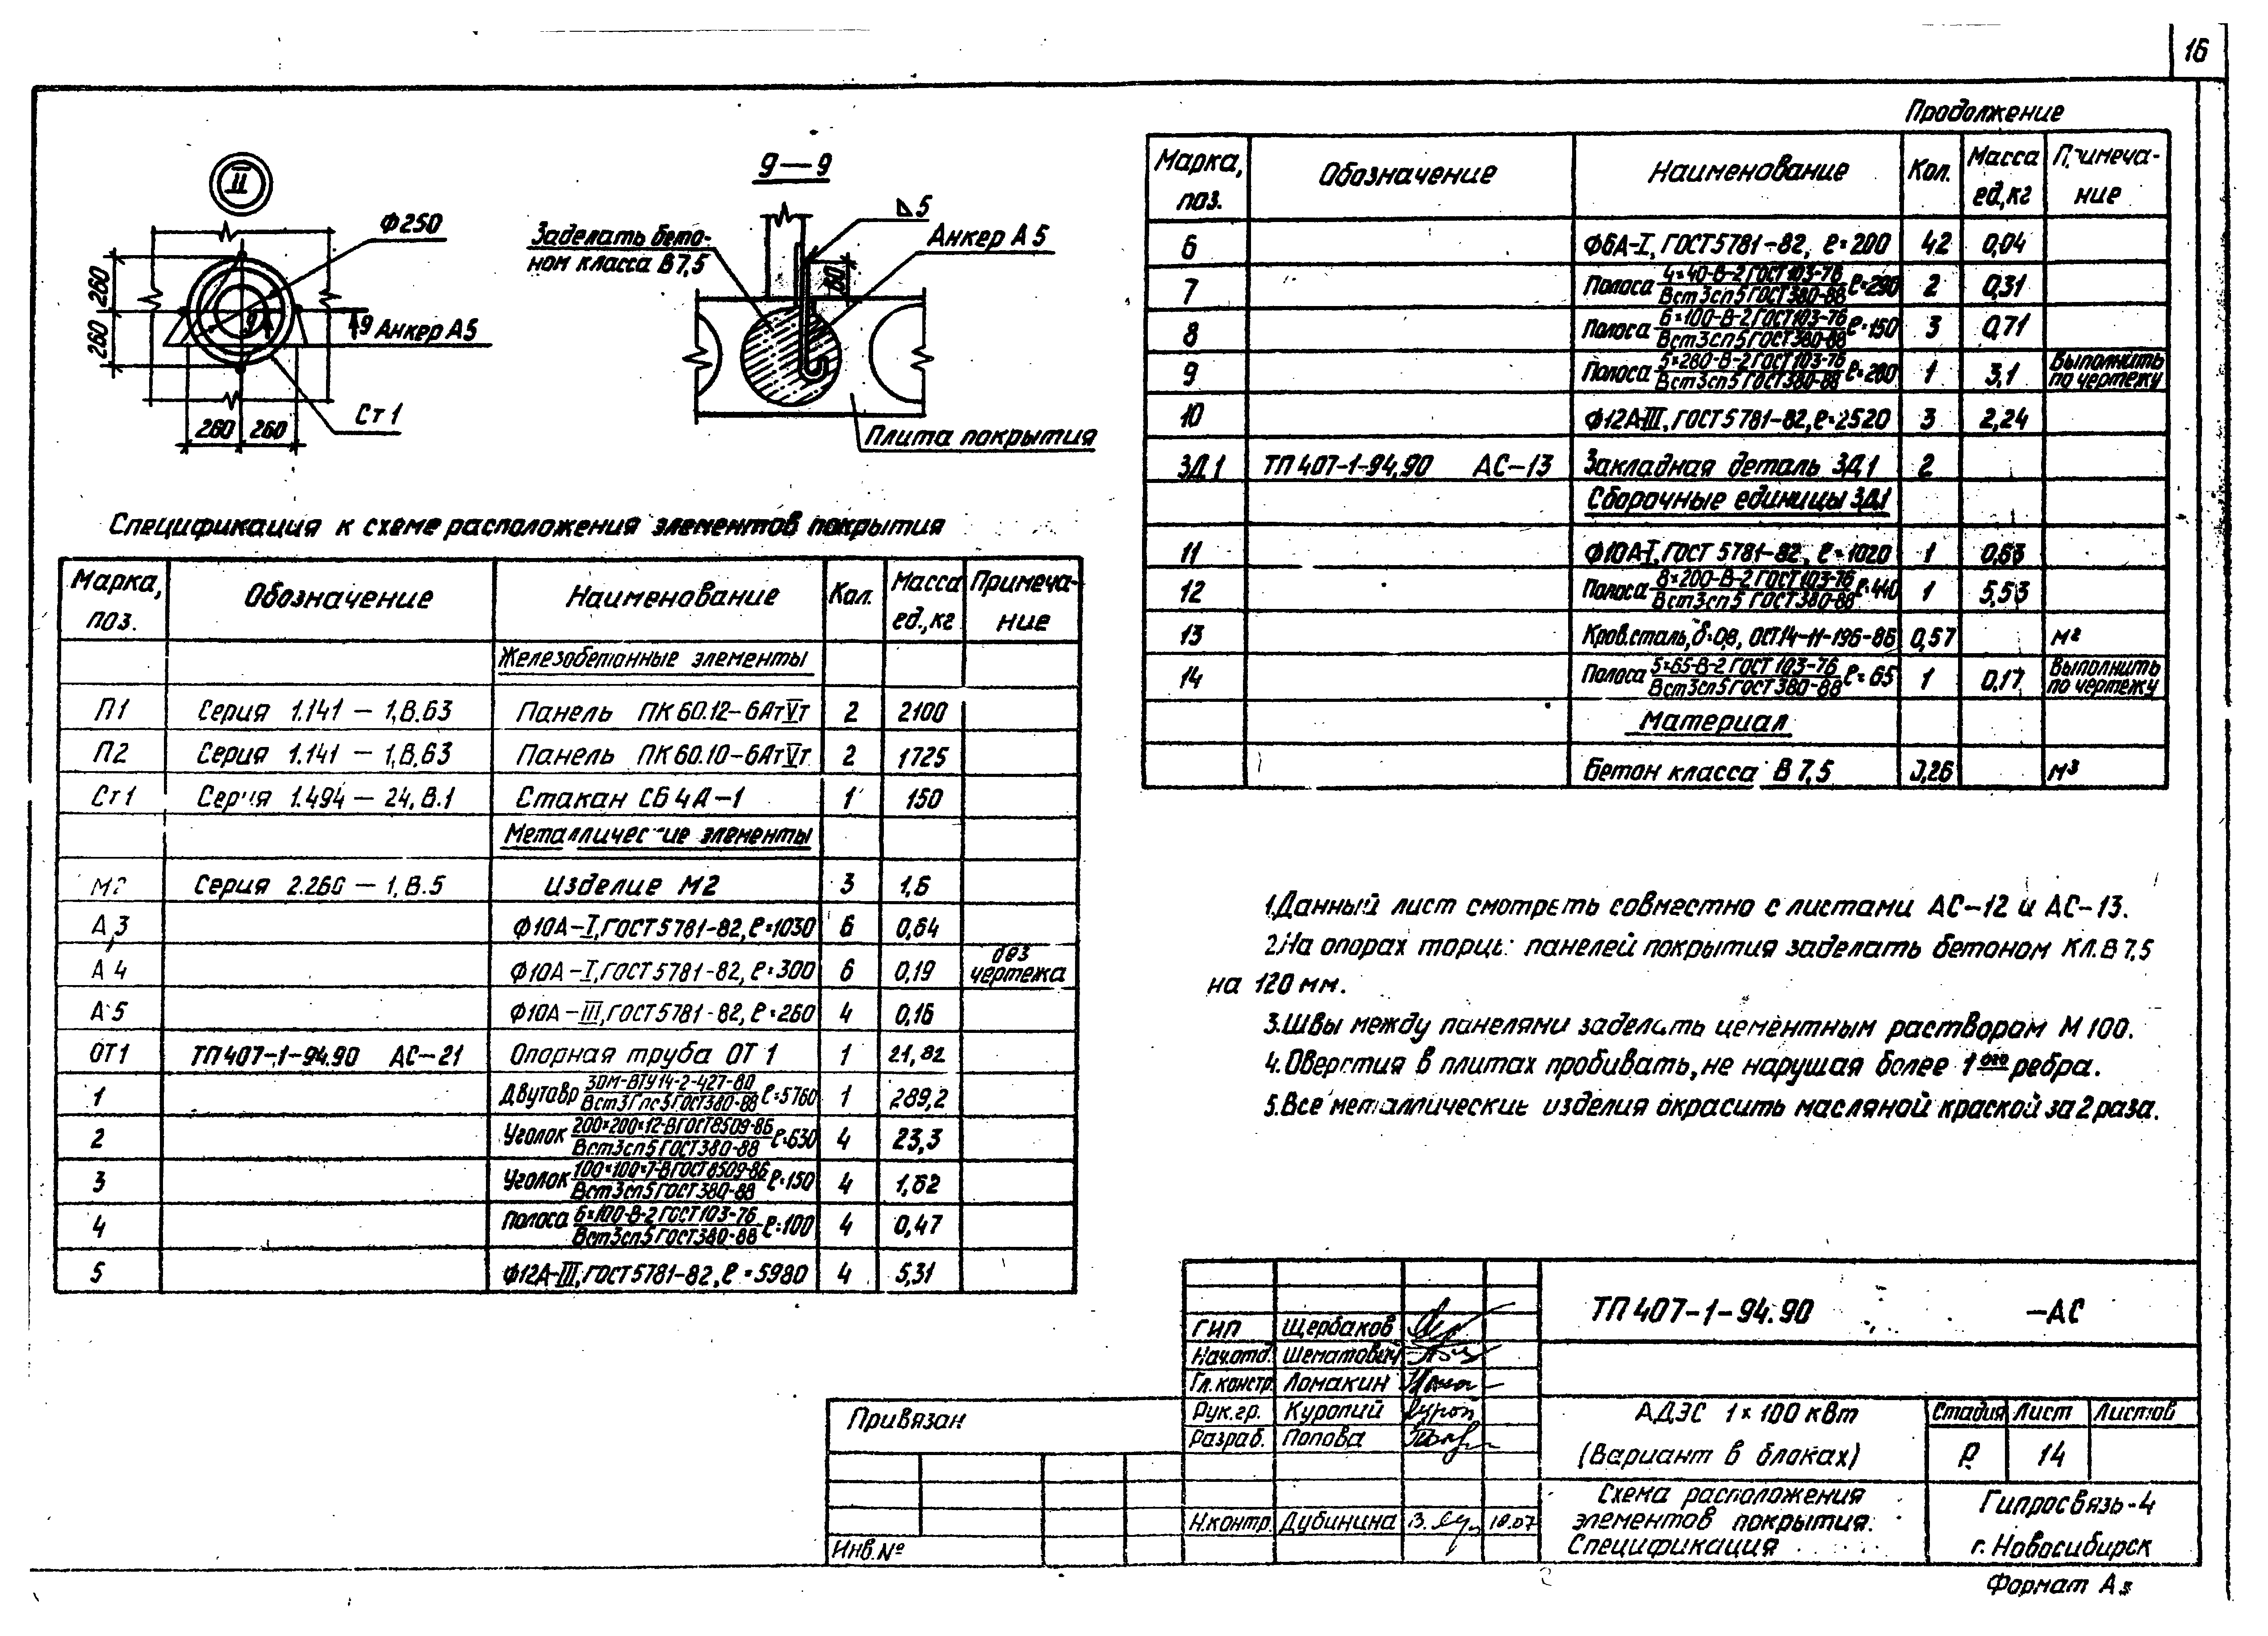 16
II
Ф250
260
260
9
9 Анкер А5
Ст 1
260 260
9—9
5
Заделать бето-
ном класса В7,5
Анкер А5
60
Плита покрытия
Спецификация к схеме расположения элементов покрытия
Марка, поз. Обозначение Наименование Кол. Масса ед., кг Примеча-ние
Железобетонные элементы
П1 Серия 1.141 – 1, В.63 Панель ПК 60.12–6АтVт 2 2100
П2 Серия 1.141 – 1, В.63 Панель ПК 60.10–6АтVт 2 1725
Ст1 Серия 1.494 – 24, В.1 Стакан СБ 4А–1 1 150
Металлические элементы
М2 Серия 2.260 – 1, В.5 Изделие М2 3 1,6
А3 Ф10А–I, ГОСТ 5781-82, ℓ=1030 6 0,64
А4 Ф10А–I, ГОСТ 5781-82, ℓ=300 6 0,19 без чертежа
А5 Ф10А–III, ГОСТ 5781-82, ℓ=260 4 0,16
ОТ1 ТП 407-1-94.90 АС-21 Опорная труба ОТ 1 1 21,82
1 Двутавр 30М-ВТУ14-2-427-80 Вст3Гпс5 ГОСТ380-88 ℓ=5760 1 289,2
2 Уголок 200×200×12-В ГОСТ8509-86 Вст3сп5 ГОСТ380-88 ℓ=630 4 23,3
3 Уголок 100×100×7-В ГОСТ 8509-86 Вст3сп5 ГОСТ380-88 ℓ=150 4 1,62
4 Полоса 6×100-В-2 ГОСТ 103-76 Вст3сп5 ГОСТ380-88 ℓ=100 4 0,47
5 Ф12А-III, ГОСТ 5781-82, ℓ=5980 4 5,31
Продолжение
Марка, поз. Обозначение Наименование Кол. Масса ед., кг Примеча-ние
6 Ф6А-I, ГОСТ 5781-82, ℓ=200 42 0,04
7 Полоса 4×40-В-2 ГОСТ 103-76 Вст3сп5 ГОСТ 380-88 ℓ=290 2 0,31
8 Полоса 6×100-В-2 ГОСТ 103-76 Вст3сп5 ГОСТ 380-88 ℓ=150 3 0,71
9 Полоса 5×280-В-2 ГОСТ 103-76 Вст3сп5 ГОСТ 380-88 ℓ=280 1 3,1 Выполнить по чертежу
10 Ф12А-III, ГОСТ 5781-82, ℓ=2520 3 2,24
ЗД1 ТП 407-1-94.90 АС-13 Закладная деталь ЗД1 2
Сборочные единицы ЗД1
11 Ф10А-I, ГОСТ 5781-82, ℓ=1020 1 0,63
12 Полоса 8×200-В-2 ГОСТ 103-76 Вст3сп5 ГОСТ 380-88 ℓ=440 1 5,53
13 Кров. сталь, δ=0,8, ОСТ14-11-196-86 0,57 м²
14 Полоса 5×65-В-2 ГОСТ 103-76 Вст3сп5 ГОСТ 380-88 ℓ=65 1 0,17 Выполнить по чертежу
Материал
Бетон класса В 7,5 0,26 м³
1. Данный лист смотреть совместно с листами АС-12 и АС-13.
2. На опорах торцы панелей покрытия заделать бетоном Кл. В 7,5
на 120 мм.
3. Швы между панелями заделать цементным раствором М 100.
4. Оверстия в плитах пробивать, не нарушая более 1ого ребра.
5. Все металлические изделия окрасить масляной краской за 2 раза.
ТП 407-1-94.90 –АС
ГИП Щербаков
Нач.отд. Шематович
Гл.констр. Ломакин
Рук.гр. Куропий
Разраб. Попова
Н.контр. Дубинина 18.07
Привязан
Инв.№
АДЭС 1×100 кВт
(Вариант в блоках)
Стадия Лист Листов
Р 14
Схема расположения
элементов покрытия.
Спецификация
Гипросвязь-4
г. Новосибирск
Формат А3